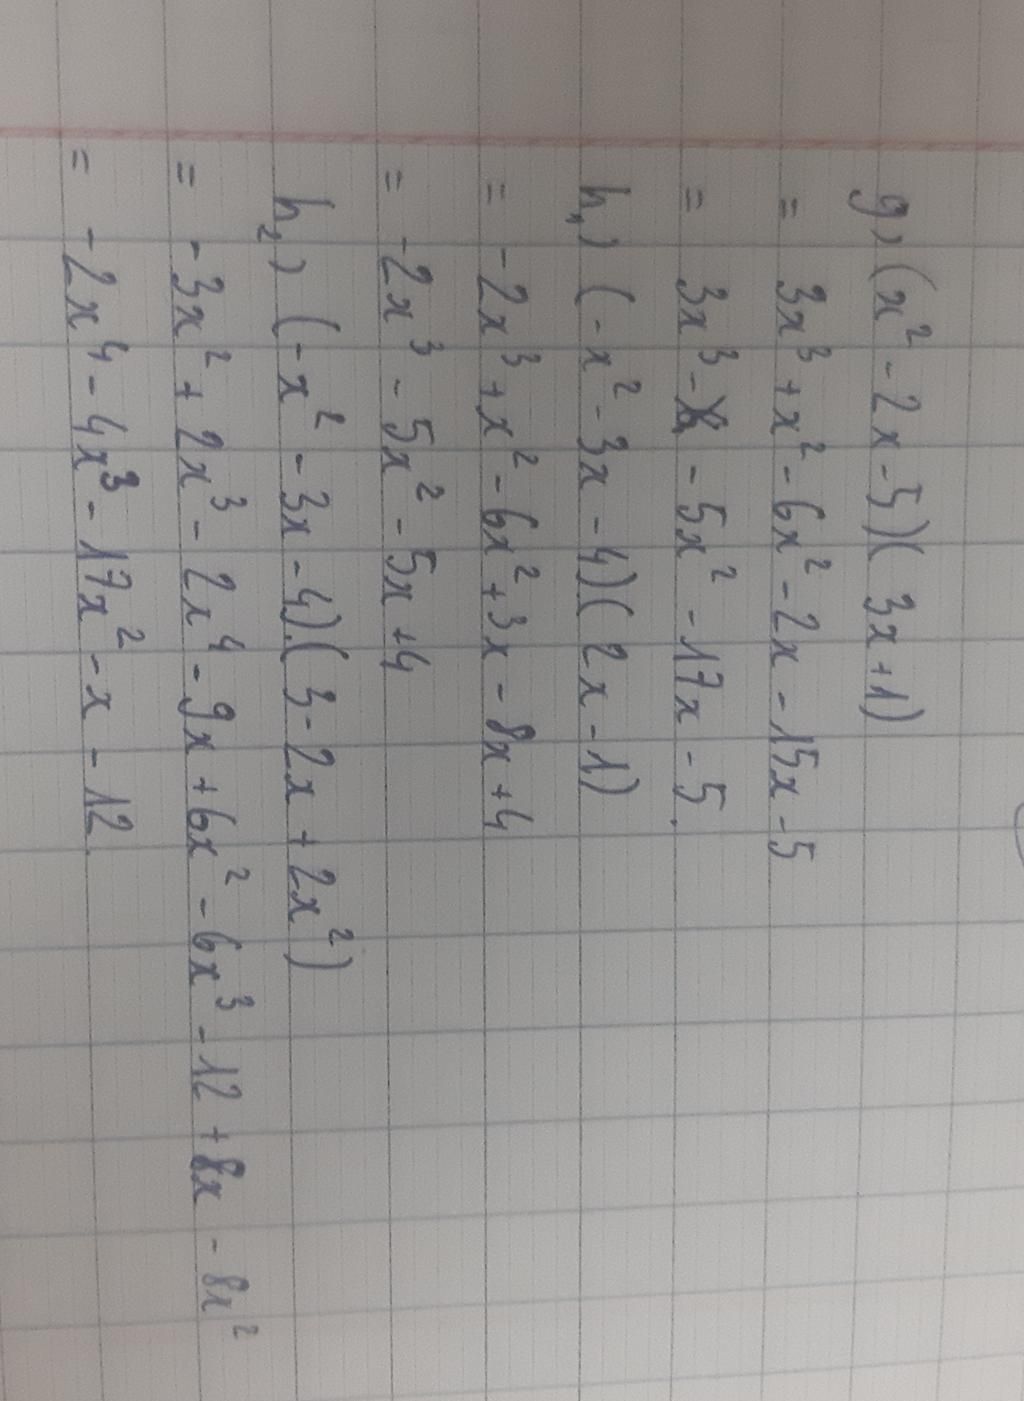 g) (x² - 2x - 5)(3x + 1)
= 3x³ + x² - 6x² - 2x - 15x - 5
= 3x³ - 5x² - 17x - 5.
h₁) (-x² - 3x - 4)(2x - 1)
= -2x³ + x² - 6x² + 3x - 8x + 4
= -2x³ - 5x² - 5x + 4
h₂) (-x² - 3x - 4)(3 - 2x + 2x²)
= -3x² + 2x³ - 2x⁴ - 9x + 6x² - 6x³ - 12 + 8x - 8x²
= -2x⁴ - 4x³ - 17x² - x - 12.